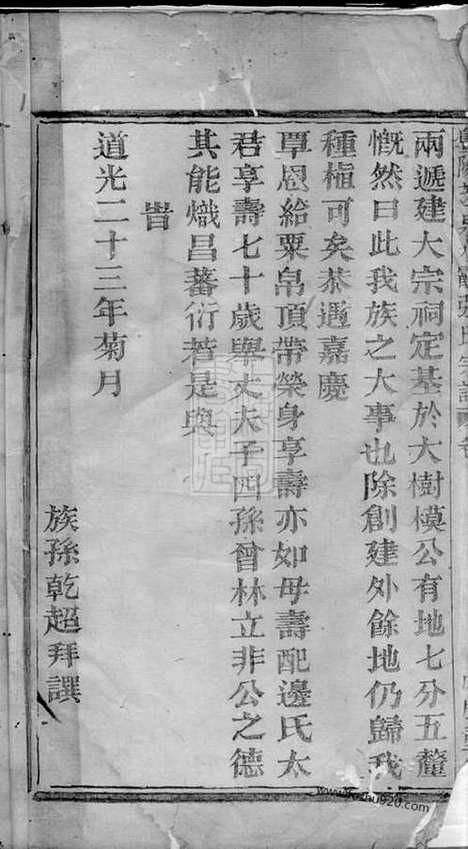 兩遞建大宗祠定基於大樹模公有地七分五釐
慨然曰此我族之大事也除創建外餘地仍歸我
種植可矣恭遇嘉慶
覃恩給粟帛頂帶榮身享壽亦如母壽配邊氏太
君享壽七十歲舉丈夫子四孫曾林立非公之德
其能熾昌蕃衍若是與
旹
道光二十三年菊月
族孫乾超拜譔
www.kozhu920.com